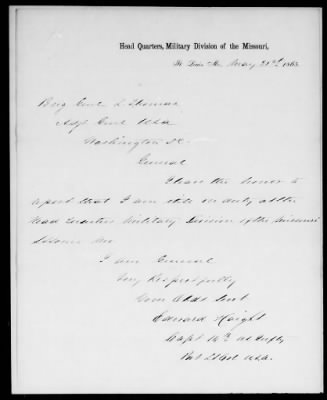 Head Quarters, Military Division of the Missouri,
St. Louis Mo. 1865.
Brig Genl L Thomas
Adjt Genl USA
Washington DC.
General
I have the honor to
report that I am still on duty at the
Head Quarters Military Division of the Missouri
St Louis Mo
I am General
Very Respectfully
Your Obdt Servt
Edward Haight
Capt 16th US Infty
Bvt Lt Col USA.